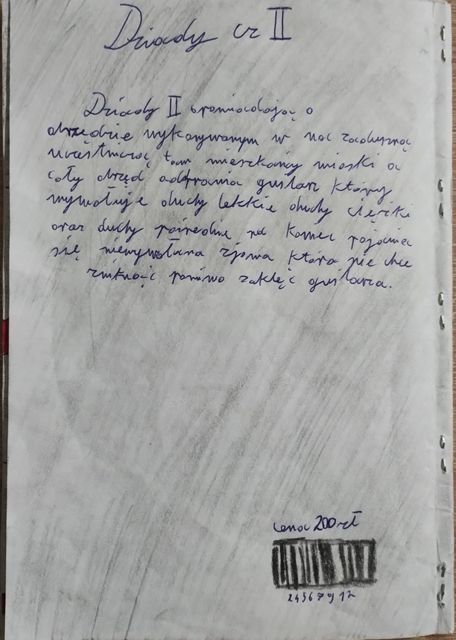 Dziady cz II
Dziady II opowiadają o
obrzędzie wykonywanym w noc zaduszną
uczestniczą tam mieszkańcy wioski a
cały obrzęd odprawia guślarz który
wywołuje duchy lekkie duchy ciężki
oraz duchy pośrednie na koniec pojawia
się niewywołana zjawa która nie chce
zniknąć pomimo zaklęć guślarza.
cena 200 zł